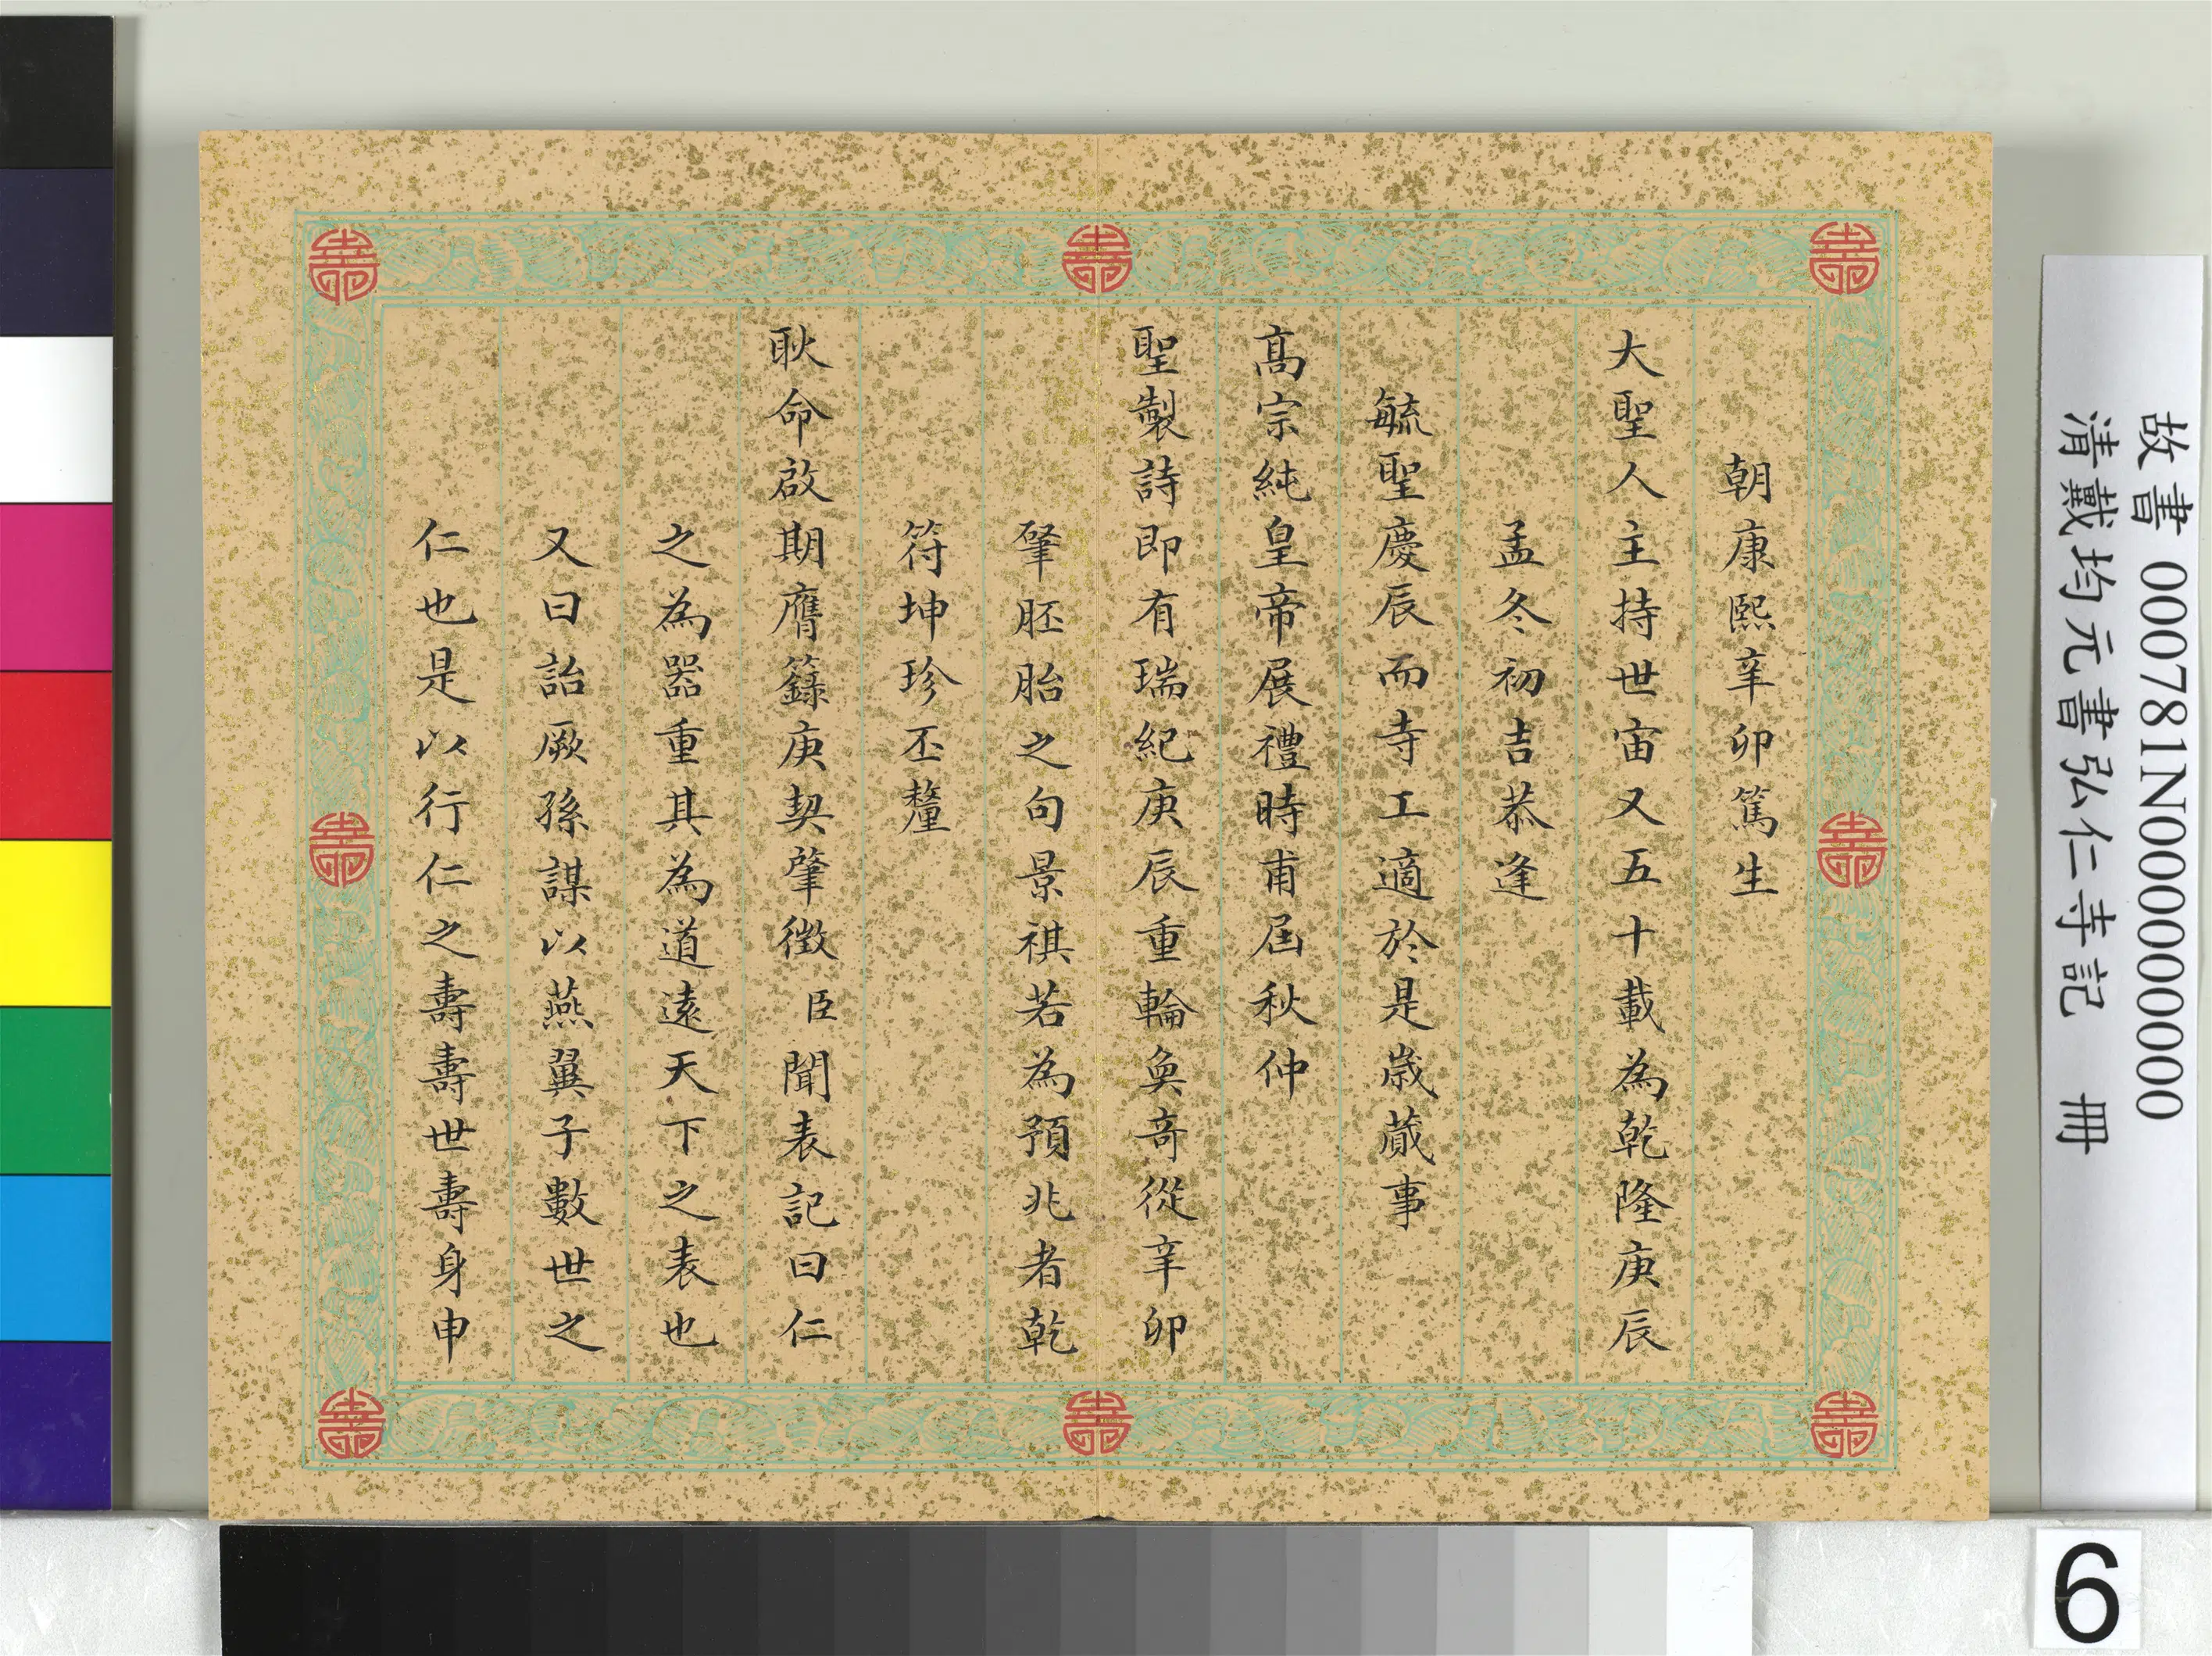 朝康熙辛卯篤生
大聖人主持世宙又五十載為乾隆庚辰
孟冬初吉恭逢
毓聖慶辰而寺工適於是歲蕆事
高宗純皇帝展禮時甫屆秋仲
聖製詩即有瑞紀庚辰重輪奐奇從辛卯
肇胚胎之句景祺若為預兆者乾
符坤珍丕釐
耿命啟期膺籙庚契肇徵臣聞表記曰仁
之為器重其為道遠天下之表也
又曰詒厥孫謀以燕翼子數世之
仁也是以行仁之壽壽世壽身申
故書 000781N000000000
清戴均元書弘仁寺記 冊
6